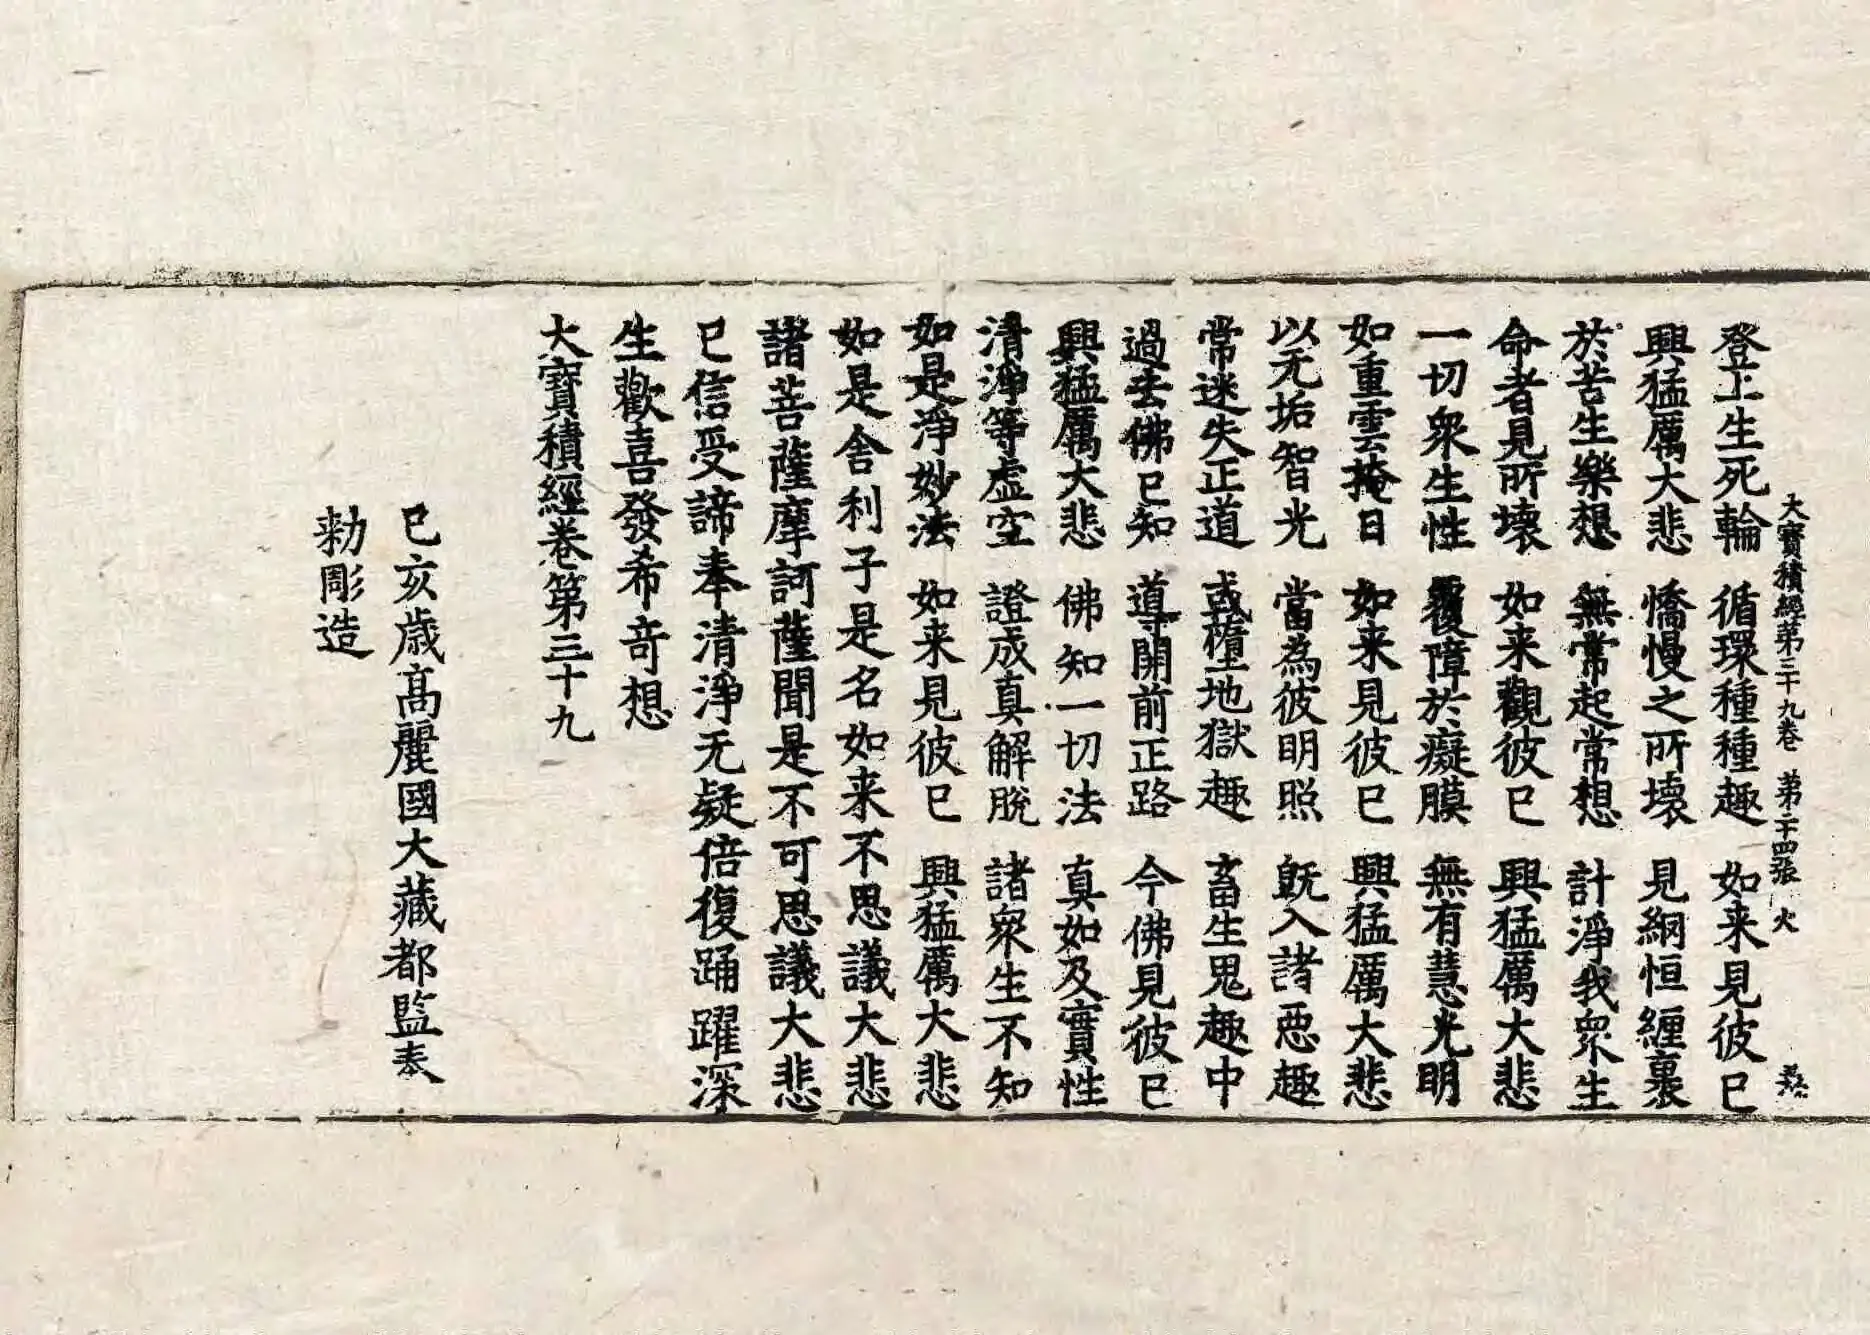 大寶積經第三十九卷 第二十四張 火
登上生死輪 循環種種趣 如来見彼已
興猛厲大悲 憍慢之所壞 見網恒纏裹
於苦生樂想 無常起常想 計淨我衆生
命者見所壞 如来觀彼已 興猛厲大悲
一切衆生性 覆障於癡膜 無有慧光明
如重雲掩日 如来見彼已 興猛厲大悲
以无垢智光 當為彼明照 旣入諸惡趣
常迷失正道 或墮地獄趣 畜生鬼趣中
過去佛已知 導開前正路 今佛見彼已
興猛厲大悲 佛知一切法 真如及實性
清淨等虛空 證成真解脫 諸衆生不知
如是淨妙法 如来見彼已 興猛厲大悲
如是舍利子是名如来不思議大悲
諸菩薩摩訶薩聞是不可思議大悲
已信受諦奉清淨无疑倍復踊躍深
生歡喜發希奇想
大寶積經卷第三十九
己亥歳高麗國大藏都監奉
勑彫造